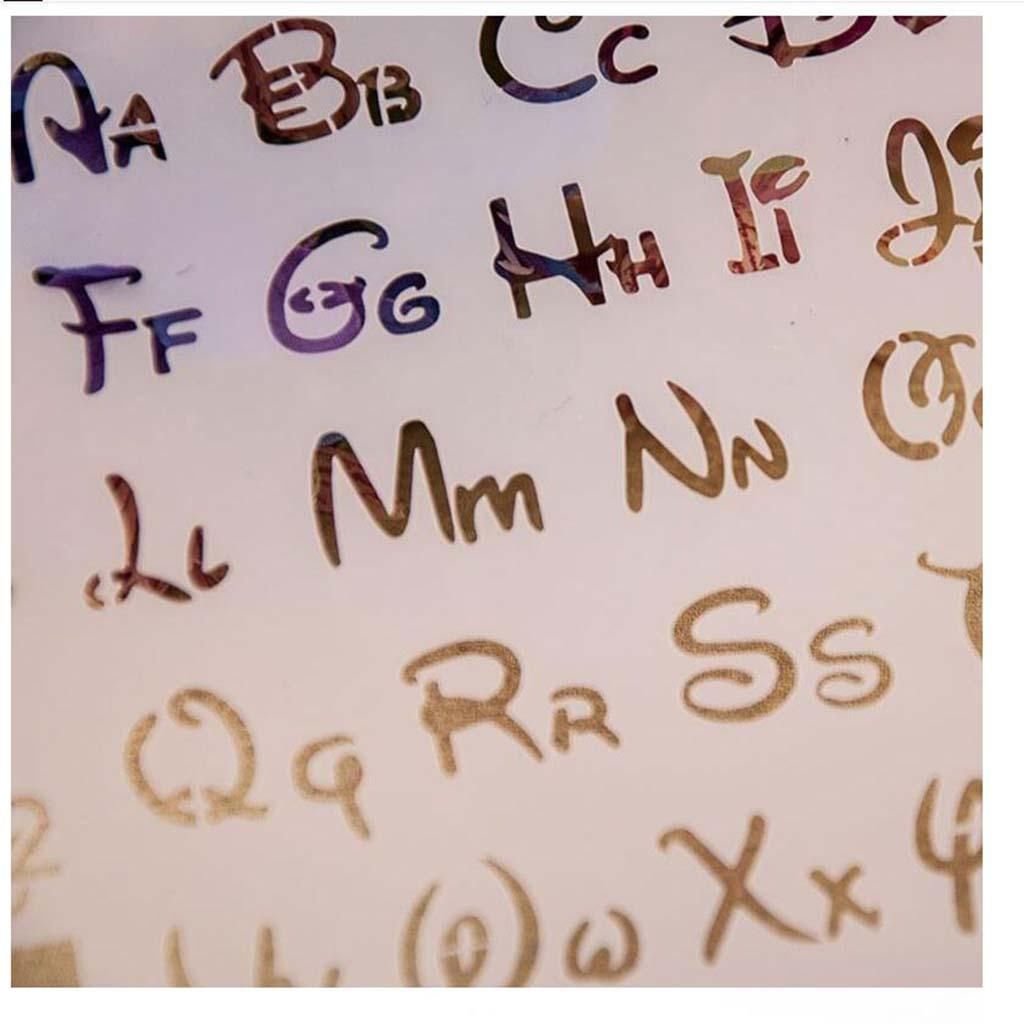 Aa Bb Cc D
Ff Gg Hh Ii J
Ll Mm Nn O
Qq Rr Ss
Ww Xx